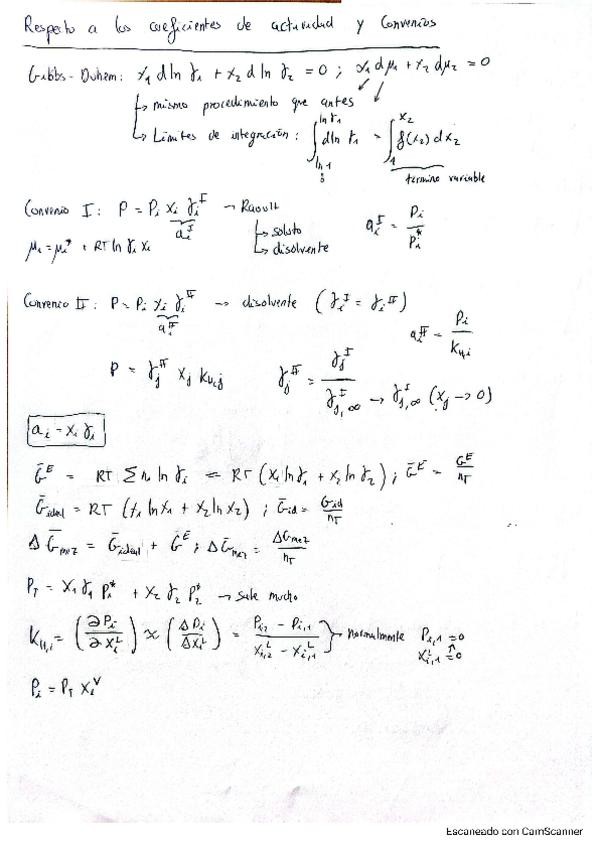 Respecto a los coeficientes de actividad y Convenios
Gibbs-Duhem: x₁ d ln γ₁ + x₂ d ln γ₂ = 0 ; x₁ dμ₁ + x₂ dμ₂ = 0
↳ mismo procedimiento que antes
↳ Límites de integración : ∫ d ln γ₁ = ∫ f(x₂) dx₂
termino variable
Convenio I : P = Pᵢ xᵢ γᵢᴵ → Raoult aᵢᴵ = Pᵢ / Pᵢ*
aᵢᴵ
↳ soluto
μᵢ = μᵢ* + RT ln γᵢ xᵢ ↳ disolvente
Convenio II : P = Pᵢ xᵢ γᵢᴵᴵ → disolvente (γᵢᴵ = γᵢᴵᴵ)
aᵢᴵᴵ aᵢᴵᴵ = Pᵢ / K_H,i
P = γⱼᴵᴵ xⱼ K_H,j γⱼᴵᴵ = γⱼᴵ / γⱼ,∞ᴵ → γⱼ,∞ᴵ (xⱼ → 0)
aᵢ = xᵢ γᵢ
G̅ᴱ = RT Σ nᵢ ln γᵢ = RT (x₁ ln γ₁ + x₂ ln γ₂) ; G̅ᴱ = Gᴱ / n_T
G̅ideal = RT (x₁ ln x₁ + x₂ ln x₂) ; G̅id = Gid / n_T
ΔG̅mez = G̅ideal + G̅ᴱ ; ΔG̅mez = ΔGmez / n_T
P_T = x₁ γ₁ P₁* + x₂ γ₂ P₂* → sale mucho
K_H,i = (∂Pᵢ / ∂xᵢᴸ) ≈ (ΔPᵢ / Δxᵢᴸ) = (Pᵢ,₂ − Pᵢ,₁) / (xᵢ,₂ᴸ − xᵢ,₁ᴸ) → normalmente Pᵢ,₁ = 0
xᵢ,₁ᴸ = 0
Pᵢ = P_T xᵢⱽ
Escaneado con CamScanner